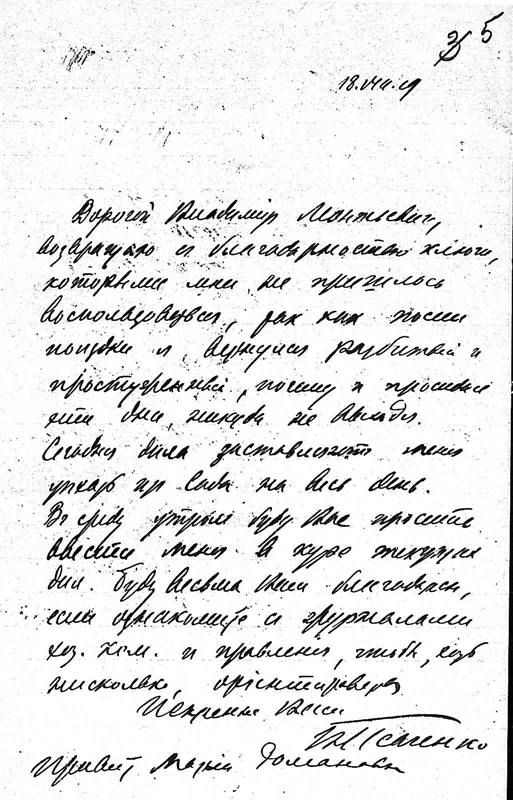 5
18.VIII.19
Дорогой Владимір
возвращаю с благодарностью ключи,
которыми мне не пришлось
воспользоваться, так как после
поездки я вернулся разбитый и
простуженный, почему и просидел
эти дни, никуда не выходя.
Сегодня дела заставляют меня
уехать из Сада на весь день.
Въ среду утромъ буду Вас просить
ввести меня в курс текущих
дел. Буду весьма Вам благодарен,
если ознакомите с журналами
хоз. ком. и правления, чтобы, хоть
несколько, орiентироваться
Искренне Ваш
Привет Марьи Романовне